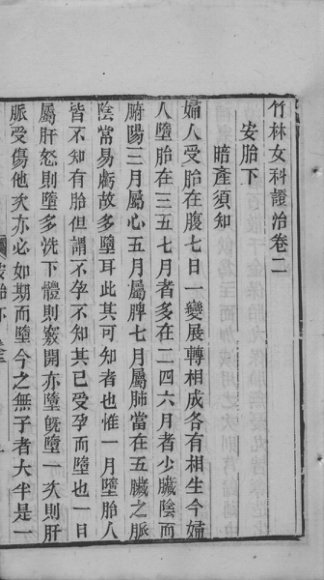 竹林女科證治卷二
安胎下
暗產須知
婦人受胎在腹七日一變展轉相成各有相生今婦
人墮胎在三五七月者多在二四六月者少臟陰而
腑陽三月屬心五月屬脾七月屬肺當在五臟之脈
陰常易虧故多墮耳此其可知者也惟一月墮胎人
皆不知有胎但謂不孕不知其已受孕而墮也一日
屬肝怒則墮多洗下體則竅開亦墮旣墮一次則肝
脈受傷他次亦必如期而墮今之無子者大半是一